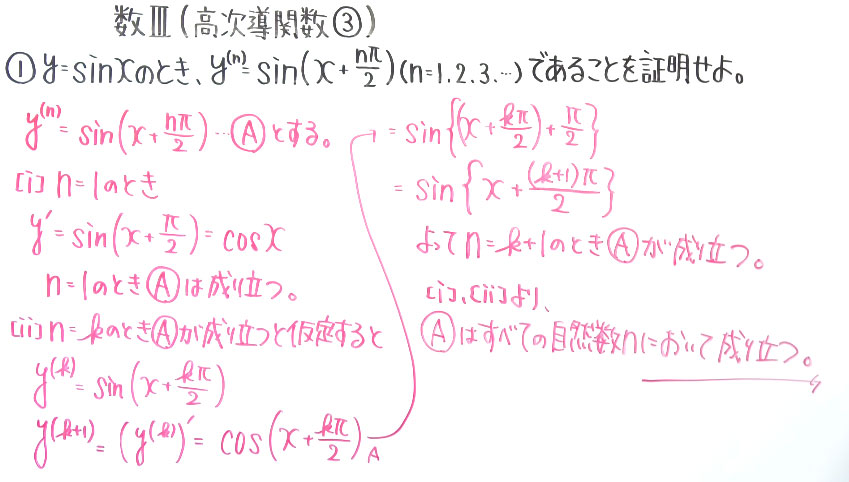 数Ⅲ(高次導関数③)
① y=sinxのとき、y⁽ⁿ⁾=sin(x+nπ/2)(n=1.2.3.…)であることを証明せよ。
y⁽ⁿ⁾=sin(x+nπ/2)…Ⓐとする。
[i] n=1のとき
y′=sin(x+π/2)=cosx
n=1のときⒶは成り立つ。
[ii] n=kのときⒶが成り立つと仮定すると
y⁽ᵏ⁾=sin(x+kπ/2)
y⁽ᵏ⁺¹⁾=(y⁽ᵏ⁾)′=cos(x+kπ/2)
A
=sin{(x+kπ/2)+π/2}
=sin{x+(k+1)π/2}
よってn=k+1のときⒶが成り立つ。
[i]、[ii]より、
Ⓐはすべての自然数nにおいて成り立つ。